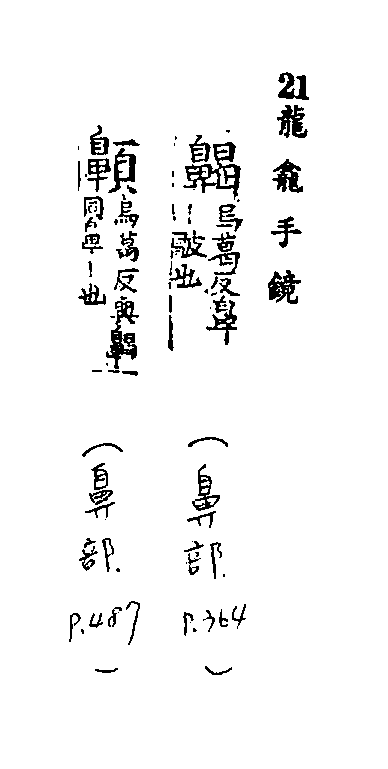 21龍龕手鏡
齃
烏葛反鼻
也
(鼻部. p.364)
烏葛反與齃
同鼻丨也
(鼻部. p.487)